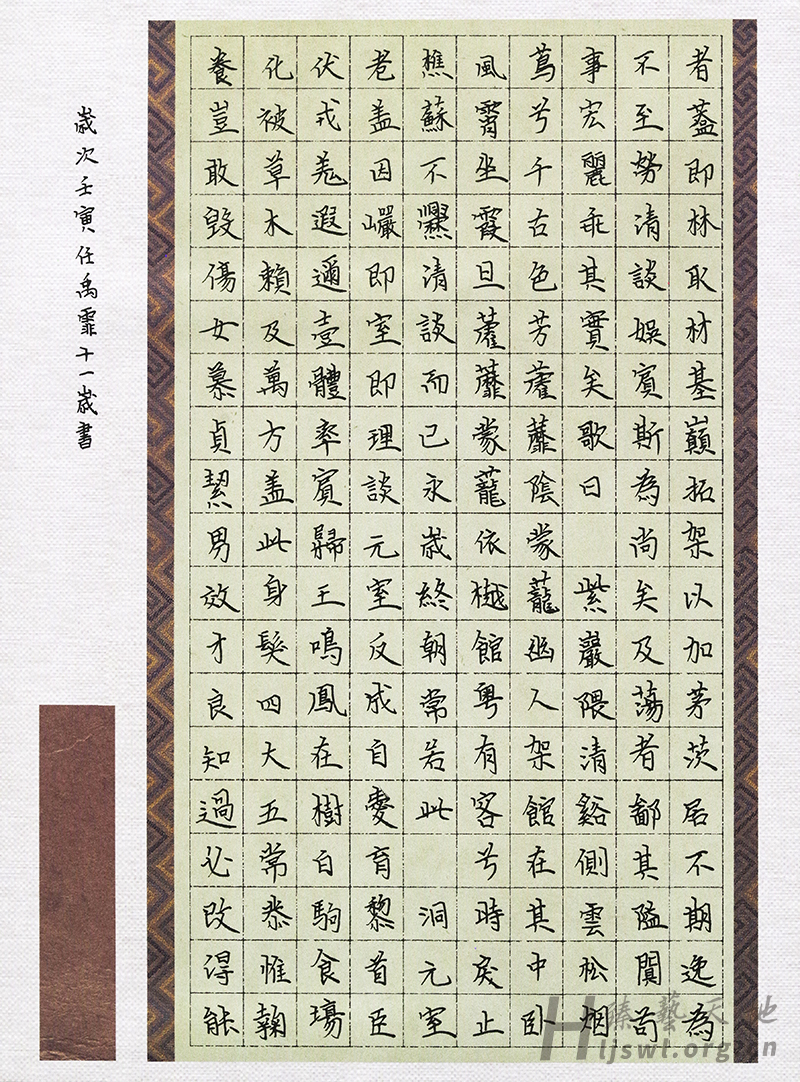 者蓋即林取材基巔拓架以加茅茨居不期逸為
不至勞清談娛賓斯為尚矣及蕩者鄙其隘闃苟
事宏麗乖其實矣歌曰 紫巖隈清谿側雲松烟
蔦兮千古色芳藿蘼陰蒙蘢幽人架館在其中卧
風霄坐霞旦藿蘼蒙蘢依樾館粵有客兮時戾止
樵蘇不爨清談而已永歲終朝常若此 洞元室
老盖因巘即室即理談元室反成自愛育黎首臣
伏戎羌遐邇壹體率賓歸王鳴鳳在樹白駒食場
化被草木賴及萬方盖此身髮四大五常恭惟鞠
養豈敢毀傷女慕貞絜男效才良知過必改得能
歲次壬寅任禹霏十一歲書
臻藝天地
Hljswl.org.cn